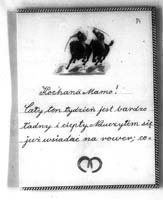 Kochana Mamo!
Cały ten tydzień jest bardzo
ładny i ciepły. Nauczyłem się
już wsiadać na rower; co-